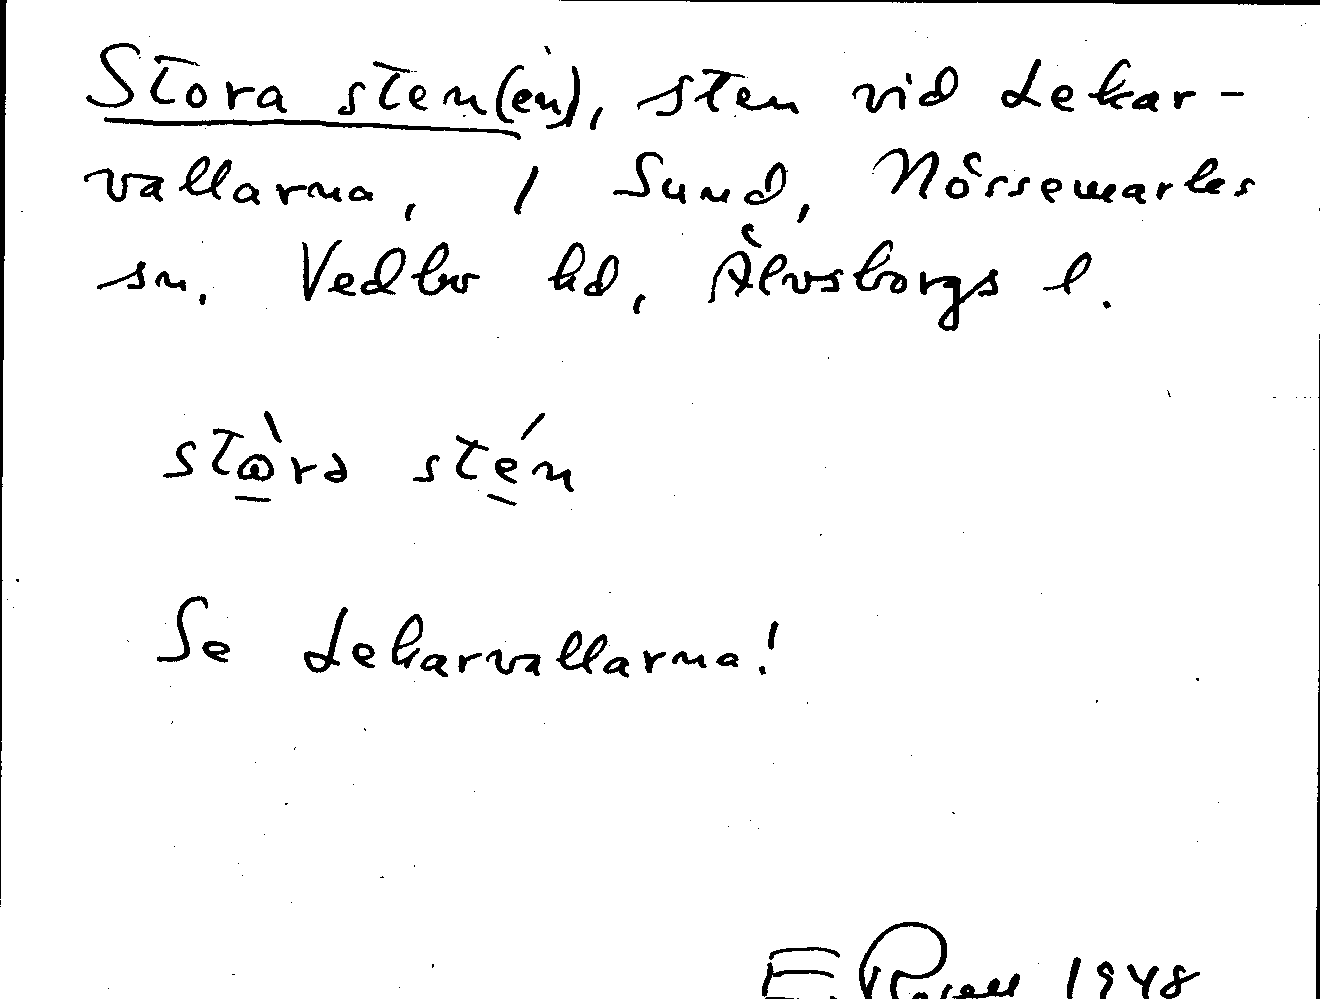 Stora sten(en), sten vid Lekar-
vallarna, / Sund, Nössemarks
sn, Vedbo hd, Älvsborgs l.
stⱺ̀rə stén
Se Lekarvallarna!
E. Rosell 1948